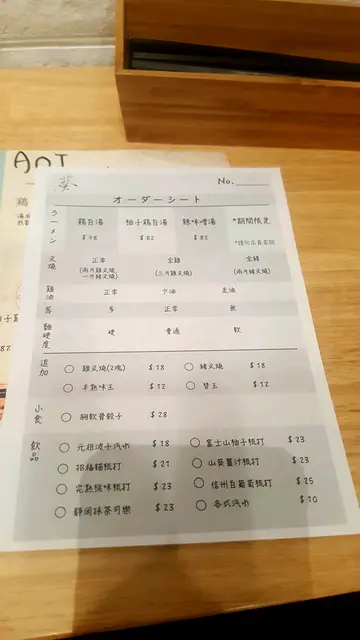 AnT
葵
No.
オーダーシート
ラーメン
鶏白湯 柚子鶏白湯 辣味噌湯 *期間限定
$78 $82 $82
叉燒 正常 全雞 全豬
(兩片雞叉燒, 一片豬叉燒) (三片雞叉燒)
雞油 正常 少油 走油
蔥 多 正常 無
麵硬度 硬 普通 軟
追加
雞叉燒(2塊) $18 豬叉燒 $18
半熟味玉 $12 替玉 $12
小食
胴軟骨餃子 $28
飲品
元祖波子汽水 $18 富士山柚子梳打 $23
招福貓梳打 $21 山葵薑汁梳打 $23
完熟桃味梳打 $23 信州白葡萄梳打 $25
靜岡抹茶可樂 $23 各式汽水 $10
鶏
82